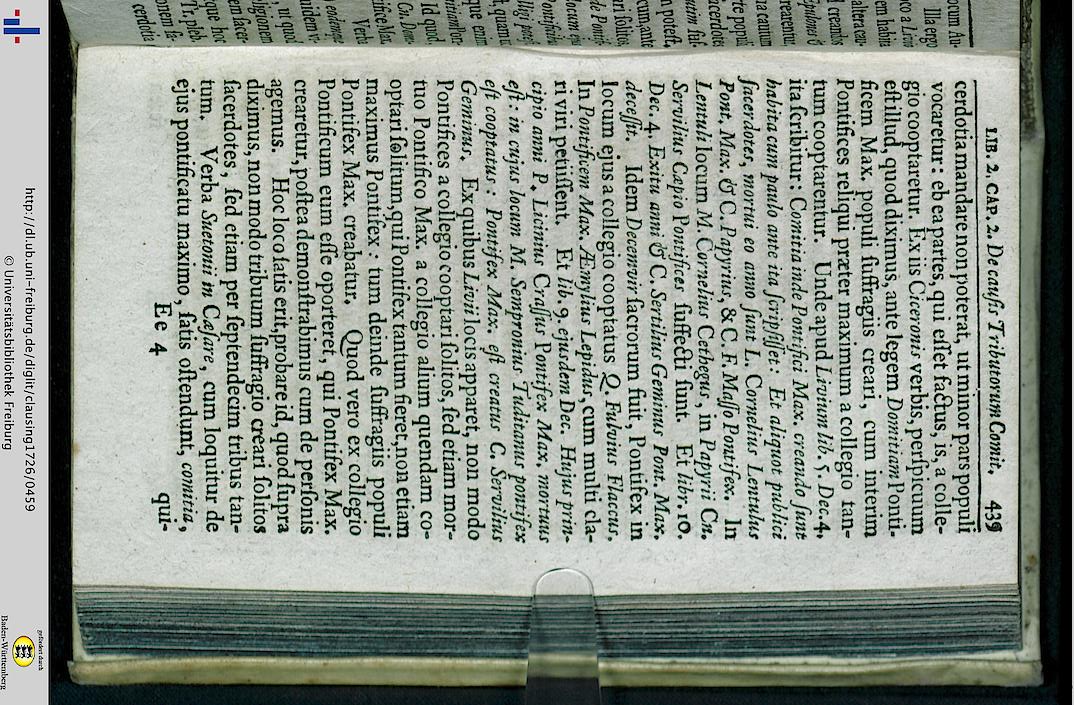 LIB. 2. CAP. 2. De causis Tributorum Comit. 439
cerdotia mandare non poterat, ut minor pars populi
vocaretur: eb ea partes, qui esset factus, is, a colle-
gio cooptaretur. Ex iis Ciceronis verbis, perspicuum
est illud, quod diximus, ante legem Domitiam Ponti-
ficem Max. populi suffragiis creari, cum interim
Pontifices reliqui præter maximum a collegio tan-
tum cooptarentur. Unde apud Livium lib. 5. Dec. 4.
ita scribitur: Comitia inde Pontifici Max. creando sunt
habita cum paulo ante ita scripsisset: Et aliquot publici
sacerdotes, mortui eo anno sunt L. Cornelius Lentulus
Pont. Max. & C. Papyrius, & C. F. Maso Pontifex. In
Lentuli locum M. Cornelius Cethegus, in Papyrii Cn.
Servilius Cæpio Pontifices suffecti sunt. Et libr. 10.
Dec. 4. Exitu anni & C. Servilius Geminus Pont. Max.
decessit. Idem Decemvir sacrorum fuit, Pontifex in
locum ejus a collegio cooptatus Q. Fulvius Flaccus.
In Pontificem Max. Æmylius Lepidus, cum multi cla-
ri viri petiissent. Et lib. 9. ejusdem Dec. Hujus prin-
cipio anni P. Licinius Crassus Pontifex Max. mortuus
est: in cujus locum M. Sempronius Tuditanus pontifex
est cooptatus: Pontifex Max. est creatus C. Servilius
Geminus. Ex quibus Livii locis apparet, non modo
Pontifices a collegio cooptari solitos, sed etiam mor-
tuo Pontifico Max. a collegio alium quendam co-
optari solitum, qui Pontifex tantum fieret, non etiam
maximus Pontifex: tum deinde suffragiis populi
Pontifex Max. creabatur. Quod vero ex collegio
Pontificum eum esse oporteret, qui Pontifex Max.
crearetur, postea demonstrabimus cum de personis
agemus. Hoc loco satis erit, probare id, quod supra
diximus, non modo tribuum suffragio creari solitos
sacerdotes, sed etiam per septendecim tribus tan-
tum. Verba Suetonii in Cæsare, cum loquitur de
ejus pontificatu maximo, satis ostendunt, comitia,
Ee 4 qui-
http://dl.ub.uni-freiburg.de/diglit/clausing1726/0459
© Universitätsbibliothek Freiburg
gefördert durch
Baden-Württemberg